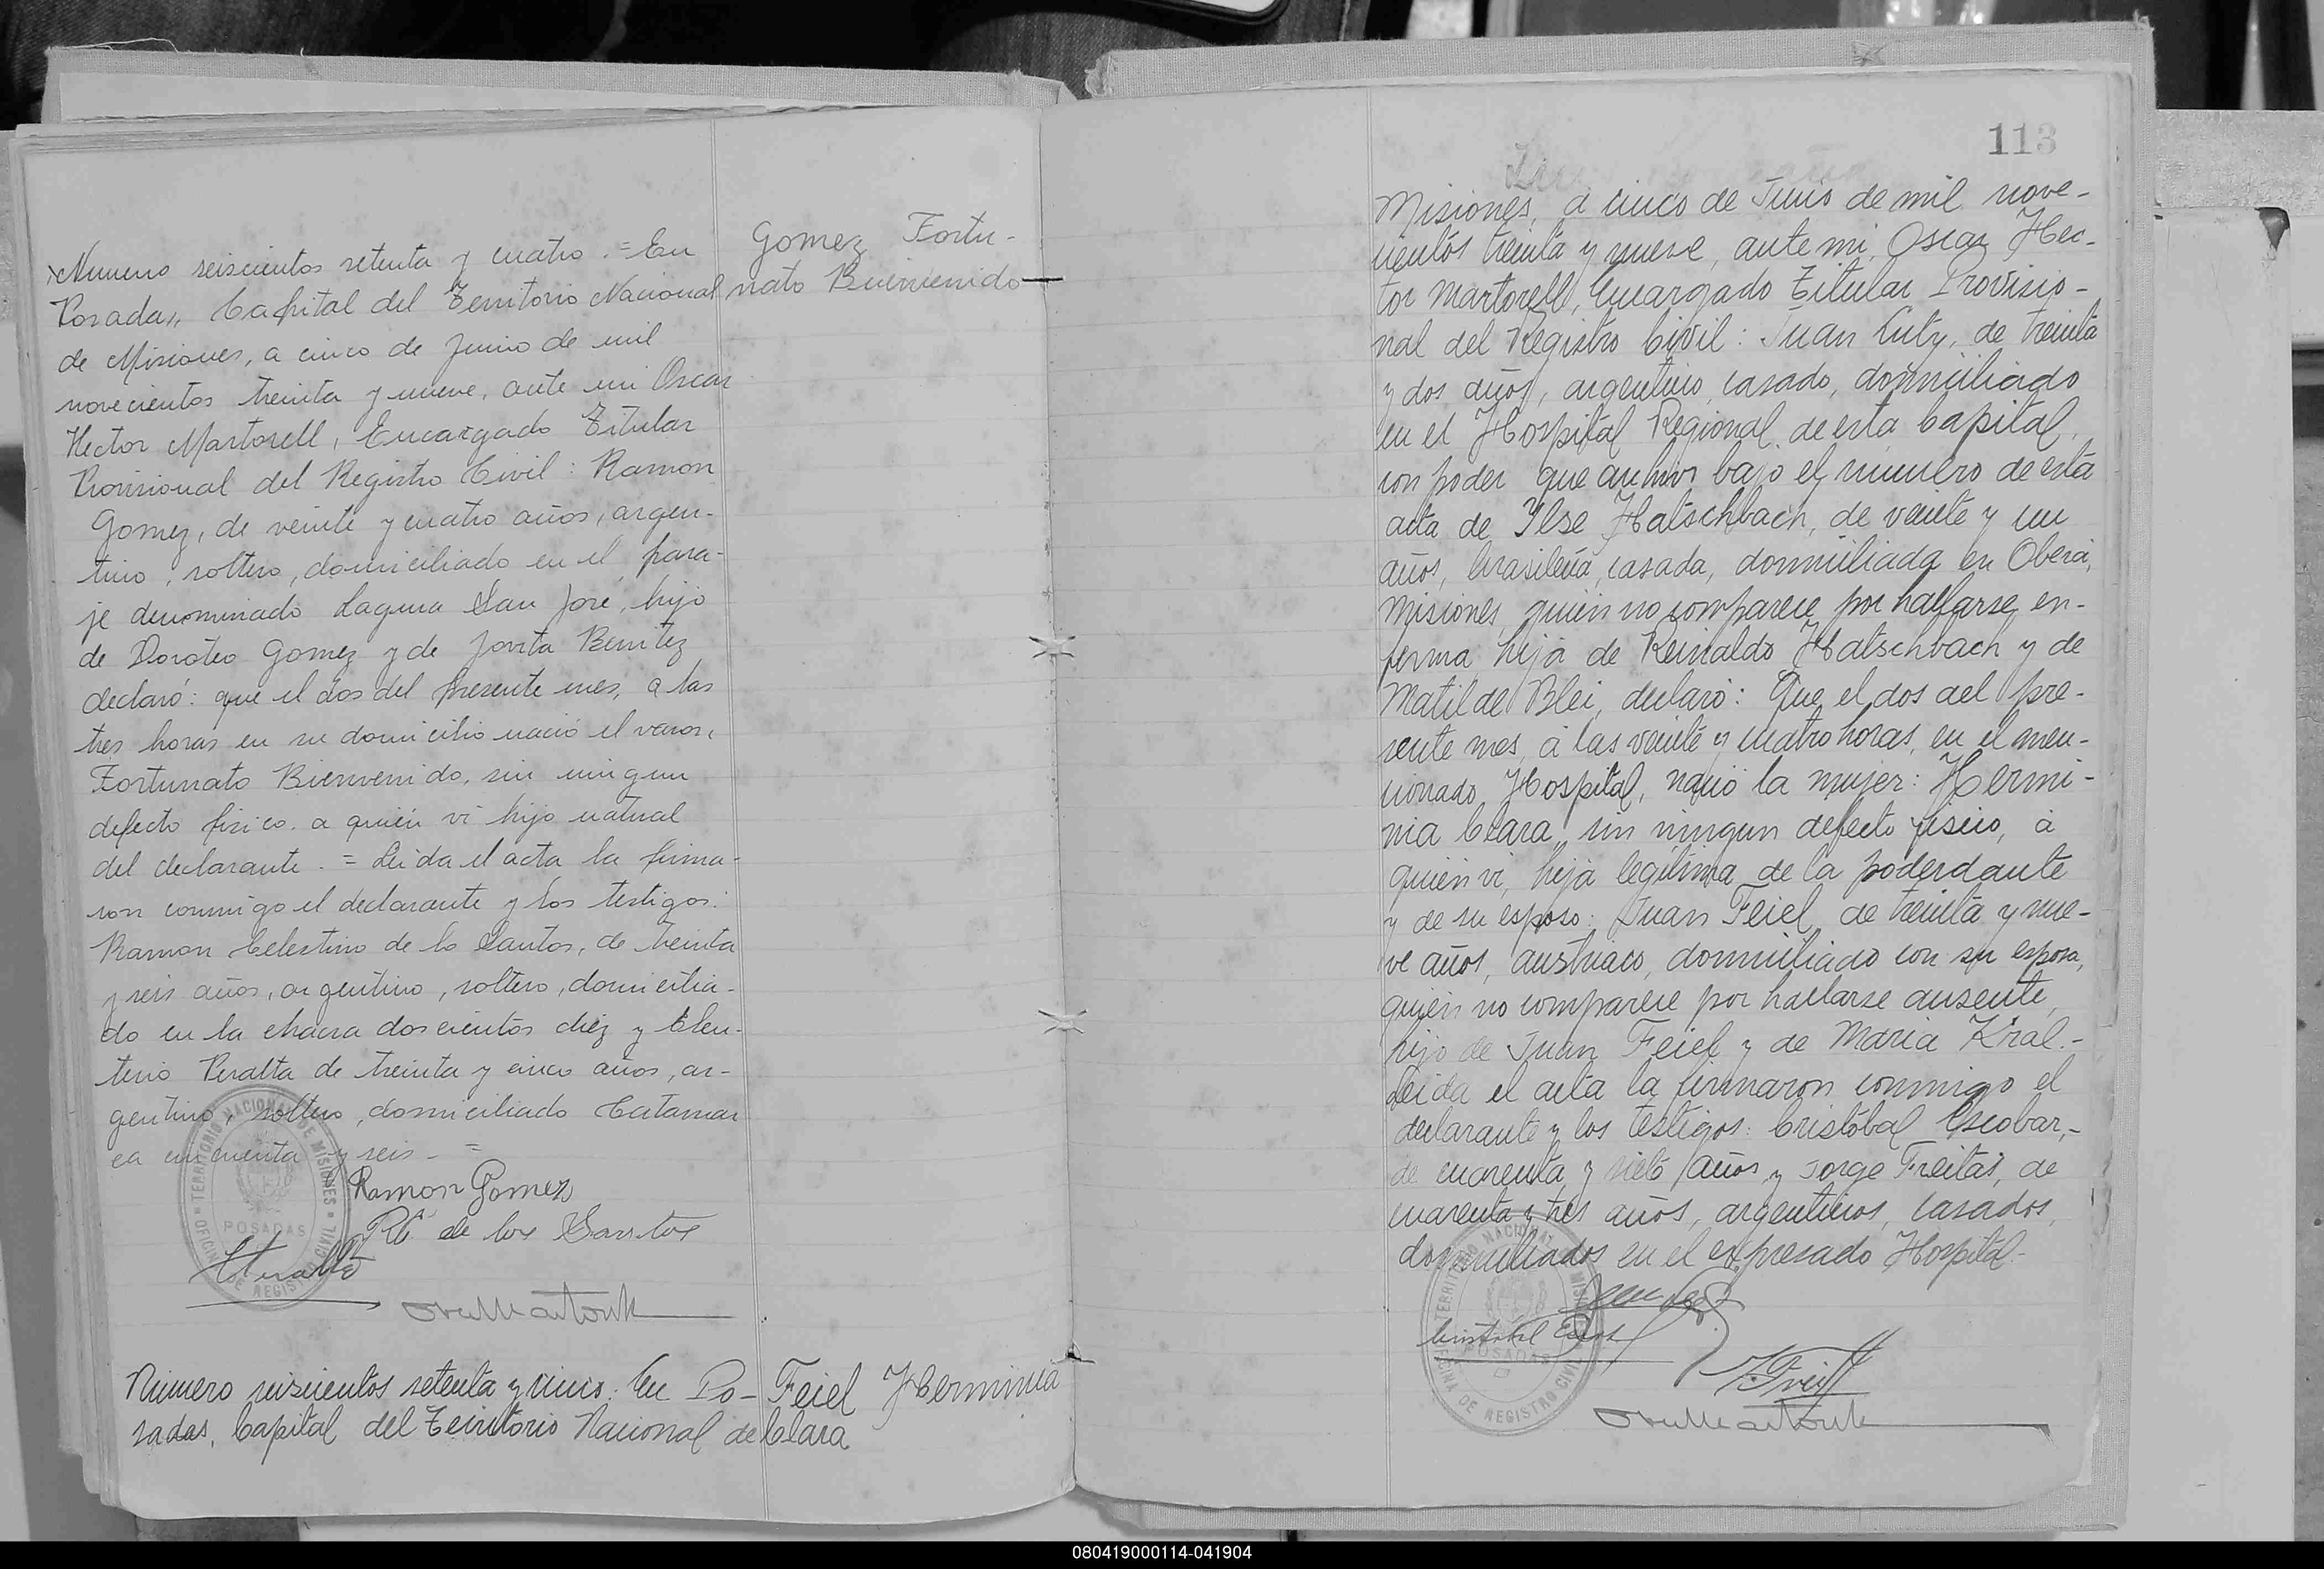 Numero seiscientos setenta y cuatro. = En
Posadas, Capital del Territorio Nacional
de Misiones, a cinco de Junio de mil
novecientos treinta y nueve, ante mi Oscar
Hector Martorell, Encargado Titular
Provisional del Registro Civil: Ramon
Gomez, de veinte y cuatro años, argen-
tino, soltero, domiciliado en el para-
je denominado Laguna San José, hijo
de Doroteo Gomez y de Jovita Benitez
declaró: que el dos del presente mes, a las
tres horas en su domicilio nació el varon,
Fortunato Bienvenido, sin ningun
defecto fisico. a quién vi hijo natural
del declarante. = Leida el acta la firma-
ron conmigo el declarante y los testigos:
Ramon Celestino de lo Santos, de treinta
y seis años, argentino, soltero, domicilia-
do en la chacra doscientos diez y Eleu-
terio Peralta de treinta y cinco años, ar-
gentino, soltero, domiciliado Catamar
ca cincuenta y seis - =
Ramon Gomez
RC de los Santos
Gomez Fortu-
nato Bienvenido
TERRITORIO NACIONAL DE MISIONES
POSADAS
OFICINA DE REGISTRO CIVIL
Número seiscientos setenta y cinco: En Po-
sadas, Capital del Territorio Nacional de
Feiel Herminia
Clara
113
Misiones, a cinco de Junio de mil nove-
cientos treinta y nueve, ante mi, Oscar Hec-
tor Martorell, Encargado Titular Provisio-
nal del Registro Civil: Juan Luty, de treinta
y dos años, argentino, casado, domiciliado
en el Hospital Regional de esta Capital,
con poder que archivo bajo el numero de esta
acta de Ilse Hatschbach, de veinte y un
años, brasileña, casada, domiciliada en Oberá,
Misiones, quién no comparece por hallarse en-
ferma hija de Reinaldo Hatschbach y de
Matilde Blei, declaró: Que el dos del pre-
sente mes, a las veinte y cuatro horas, en el men-
cionado Hospital, nació la mujer: Hermi-
nia Clara, sin ningun defecto fisico, a
quién vi, hija legitima de la poderdante
y de su esposo: Juan Feiel, de treinta y nue-
ve años, austriaco, domiciliado con su esposa,
quién no comparece por hallarse ausente,
hijo de Juan Feiel y de Maria Kral.-
Leida el acta la firmaron conmigo el
declarante y los testigos: Cristóbal Escobar,-
de cuarenta y siete años y Jorge Freitas, de
cuarenta y tres años, argentinos, casados,
domiciliados en el expresado Hospital-
TERRITORIO NACIONAL MISIONES
POSADAS
OFICINA DE REGISTRO CIVIL
080419000114-041904